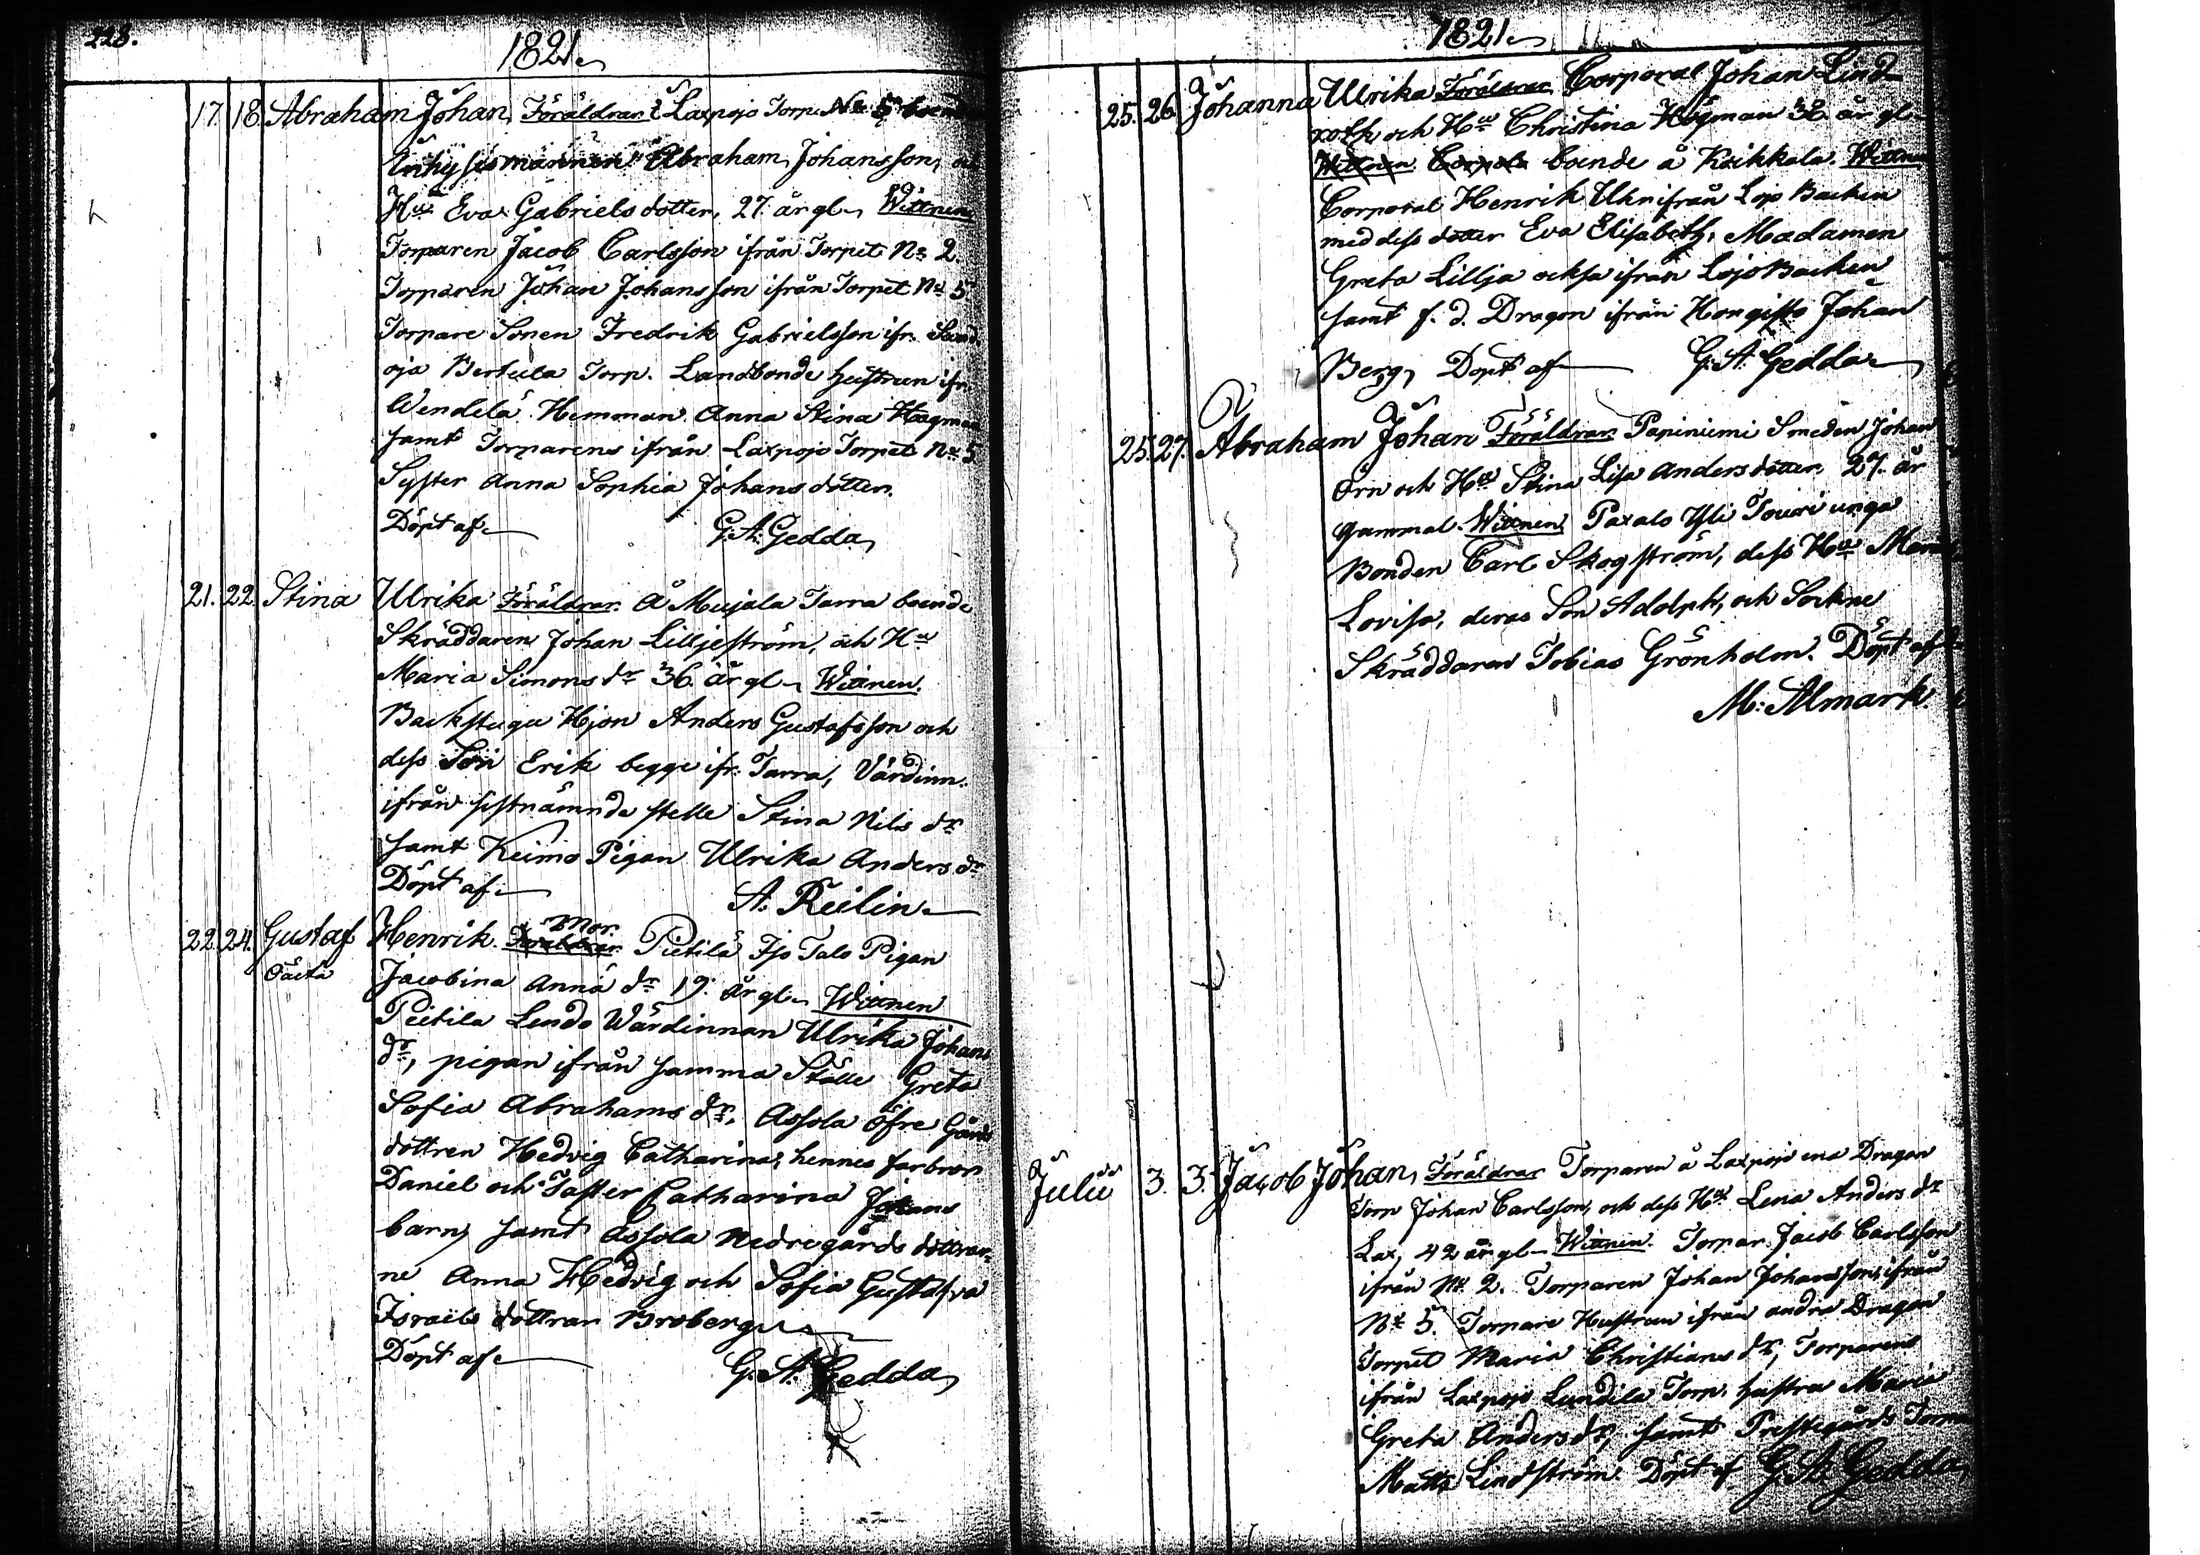 228.
1821.
17. 18. Abraham Johan, Föräldrar: Laxpojo Torp. No 5 boende
Inhysismannen Abraham Johansson, och
Hu Eva Gabrielsdotter, 27. år gl. Wittnen
Torparen Jacob Carlsson ifrån Torpet No 2.
Torparen Johan Johansson ifrån Torpet No 5.
Torpare Sonen Fredrik Gabrielsson ifr.
oja Bertula Torp. Landbonde hustrun ifr.
Wendelä Hemman Anna Stina Hagman
samt Torparens ifrån Laxpojo Torpet No 5
Syster Anna Sophia Johansdotter.
Döpt af G. A. Gedda
21. 22. Stina Ulrika Föräldrar. Å Mujala Tarra boende
Skräddaren Johan Lilljeström, och Hu
Maria Simons dr 36. år gl. Wittnen.
Backstugu Hjon Anders Gustafsson och
dess Son Erik begge ifr. Tarra, Värdinn.
ifrån sistnämnde stelle Stina Nils dr
samt Keimo Pigan Ulrika Anders dr
Döpt af A. Reilin
22. 24. Gustaf Henrik. Föräldrar Mor. Pietilä Iso Talo Pigan
Oäcta Jacobina Anna dr 19. år gl. Wittnen
Peitila Lendo Wärdinnan Ulrika Johans
dr, pigan ifrån samma Ställe Greta
Sofia Abrahams dr, Assola Öfre Gårds
dottren Hedvig Catharina, hennes farbror
Daniel och Faster Catharina Johans
barn, samt Assola Nedregårds döttrar-
ne Anna Hedvig och Sofia Gustafva
Israels döttrar Broberg
Döpt af G. A. Gedda
1821
25. 26. Johanna Ulrika Föräldrar Corporal Johan Lind
roth och Hu Christina Högman 38 år gl.
Wittnen boende å Koikkala. Wittnen
Corporal Henrik Uhn ifrån Lojo Backen
med dess dotter Eva Elisabeth, Madamen
Greta Lillja också ifrån Lojo Backen
samt f. d. Dragon ifrån Hongisto Johan
Berg, Döpt af G. A. Gedda
25. 27. Abraham Johan Föräldrar Papiniemi Smeden Johan
Örn och Hu Stina Lisa Andersdotter 27. år
gammal. Wittnen Paxalo Yli Touri unga
Bonden Carl Skogström, dess Hu Maria
Lovisa, deras Son Adolph, och Sockne
Skräddaren Tobias Grönholm. Döpt af
M. Almark
Julii 3. 3. Jacob Johan, Föräldrar Torparen å Laxpojo ena Dragon
Torp Johan Carlsson, och dess Hu Lena Anders dr
Lax, 42 år gl. Wittnen. Torpar. Jacob Carlsson
ifrån No 2. Torparen Johan Johansson, ifrån
No 5. Torpare Hustrun ifrån andra Dragon
Torpet Maria Christians dr, Torparens
ifrån Laxpojo Lundila Torp. hustru Maria
Greta Anders dr, samt Prestegårds Torpar
Matts Lindström. Döpt af G. A. Gedda